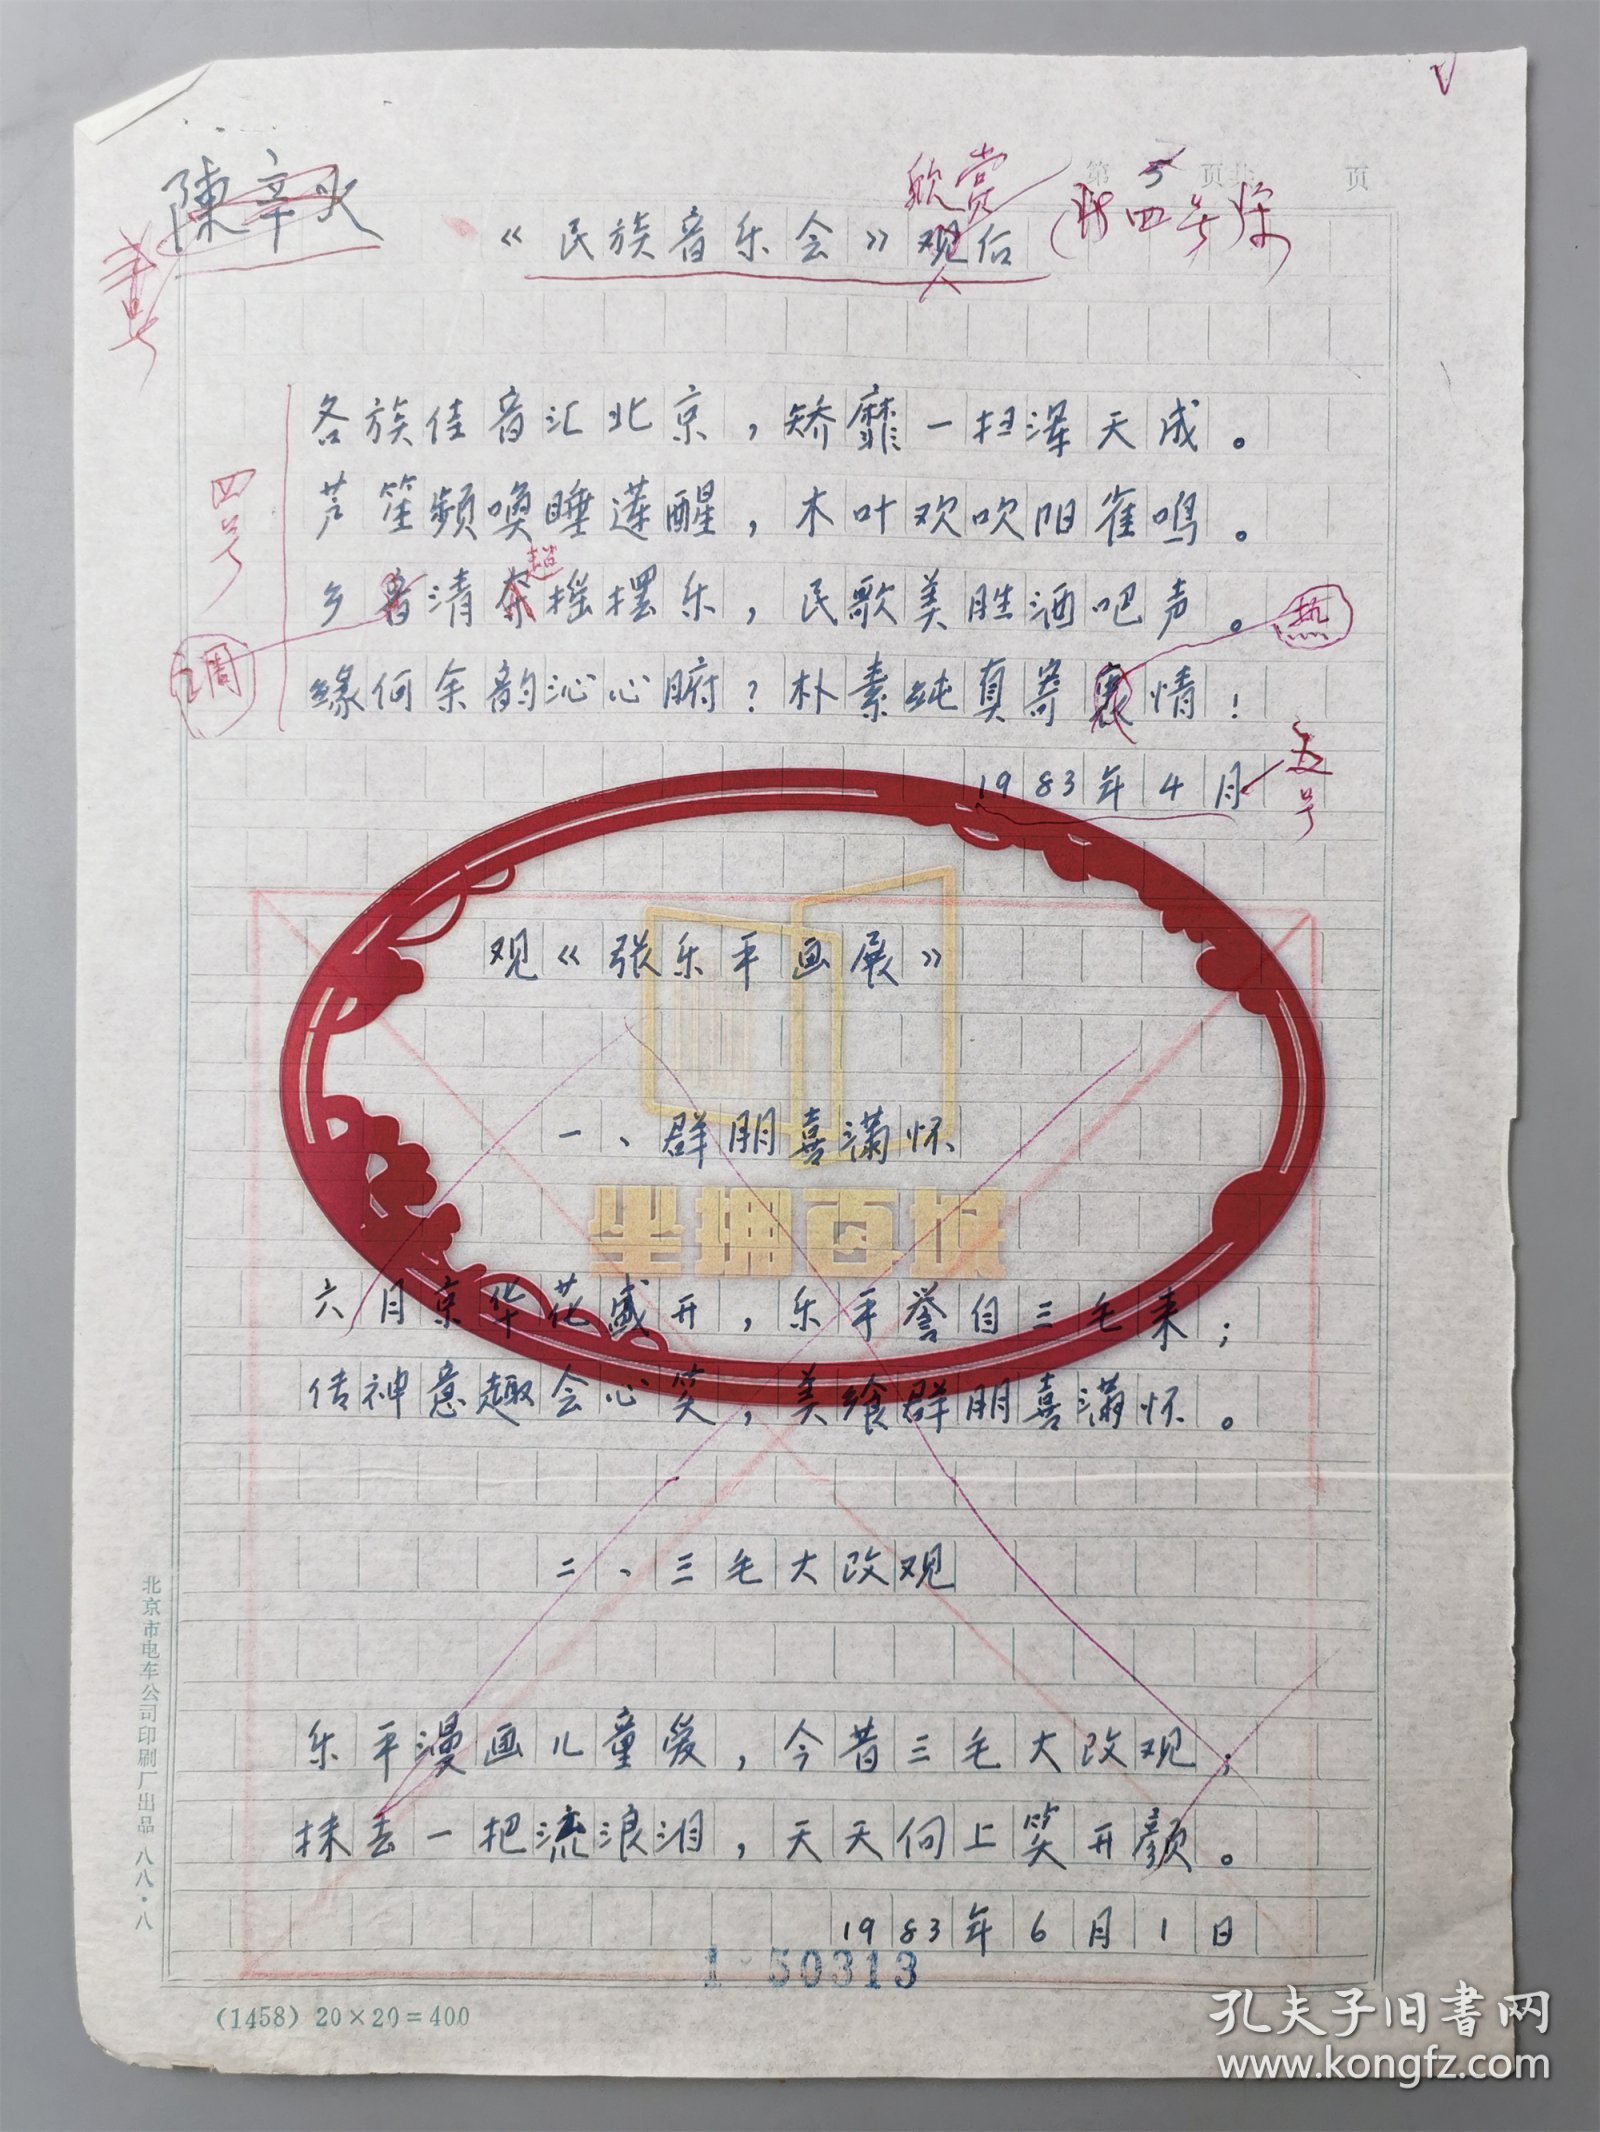 第5页共 页
陳辛火
欣赏
《民族音乐会》观后
各族佳音汇北京，矫靡一扫浑天成。
芦笙频唤睡莲醒，木叶欢吹阳雀鸣。
超
乡音清奈摇摆乐，民歌美胜酒吧声。
热
四号
调
缘何余韵沁心腑？朴素纯真寄衷情！
五号
1983年4月
观《张乐平画展》
一、群朋喜满怀
六月京华花盛开，乐平誉自三毛来；
传神意趣会心笑，美飨群朋喜满怀。
二、三毛大改观
乐平漫画儿童爱，今昔三毛大改观；
抹去一把流浪泪，天天向上笑开颜。
1983年6月1日
1 50313
北京市电车公司印刷厂出品 八八·八
(1458) 20×20=400
孔夫子旧书网
www.kongfz.com